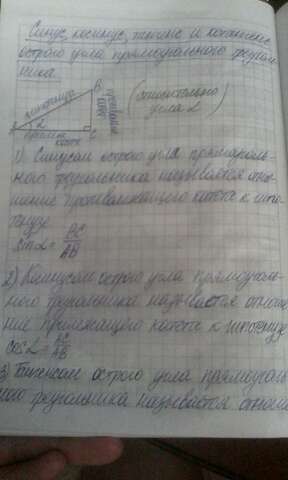 Синус, косинус, тангенс и котангенс
острого угла прямоугольного треуголь-
ника.
B
гипотенуза
противолеж.
катет
(относительно
угла α)
α
C
прилеж.
катет
1) Синусом острого угла прямоуголь-
ного треугольника называется отно-
шение противолежащего катета к гипо-
тенузе
sin α = BC/AB
2) Косинусом острого угла прямоуголь-
ного треугольника называется отноше-
ние прилежащего катета к гипотенузе
cos α = AC/AB
3) Тангенсом острого угла прямоуголь-
ного треугольника называется отноше-